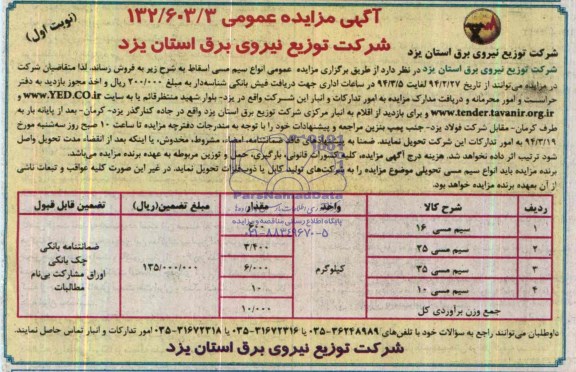 (نوبت اول)
آگهی مزایده عمومی ۱۳۲/۶۰۳/۳
شرکت توزیع نیروی برق استان یزد
شرکت توزیع نیروی برق استان یزد
شرکت توزیع نیروی برق استان یزد در نظر دارد از طریق برگزاری مزایده عمومی انواع سیم مسی اسقاط به شرح زیر به فروش رساند. لذا متقاضیان شرکت
در مزایده می‌توانند از تاریخ ۹۴/۲/۲۷ لغایت ۹۴/۳/۵ در ساعات اداری جهت دریافت فیش بانکی شناسه‌دار به مبلغ ۲۰۰/۰۰۰ ریال و اخذ مجوز بازدید به دفتر
حراست و امور محرمانه و دریافت مدارک مزایده به امور تدارکات و انبار این شرکت واقع در یزد- بلوار شهید منتظرقائم یا به سایت www.YED.CO.ir و
www.tender.tavanir.org.ir و برای بازدید از اقلام به انبار مرکزی شرکت توزیع برق استان یزد واقع در جاده کنارگذر یزد- کرمان- بعد از پایانه بار به
طرف کرمان- مقابل شرکت فولاد یزد- جنب پمپ بنزین مراجعه و پیشنهادات خود را با توجه به مندرجات دفترچه مزایده تا ساعت ۱۰ صبح روز سه‌شنبه مورخ
۹۴/۳/۱۹ به امور تدارکات این شرکت تحویل نمایند. ضمنا به فاقد ضمانتنامه، امضا، مشروط، مخدوش، یا اینکه بعد از انقضاء مدت تحویل واصل
شود ترتیب اثر داده نخواهد شد. هزینه درج آگهی مزایده، کلیه کسورات قانونی، بارگیری، حمل و توزین مربوطه به عهده برنده مزایده می‌باشد.
برنده مزایده باید انواع سیم مسی تحویلی موضوع مزایده را به شرکت‌های تولید کابل یا ذوب فلزات تحویل نماید. در غیر این صورت کلیه عواقب و تبعات ناشی
از آن بعهده برنده مزایده خواهد بود.
ردیف شرح کالا واحد مقدار مبلغ تضمین(ریال) تضمین قابل قبول
۱ سیم مسی ۱۶
۲ سیم مسی ۲۵ ۳/۴۰۰
۳ سیم مسی ۳۵ کیلوگرم ۶/۰۰۰ ۱۳۵/۰۰۰/۰۰۰
۴ سیم مسی ۱۰ ۱۰
جمع وزن برآوردی کل ۱۰/۰۰۰
ضمانتنامه بانکی
چک بانکی
اوراق مشارکت بی‌نام
مطالبات
ParsNamadData
پایگاه اطلاع رسانی مناقصه و مزایده
۰۲۱-۸۸۳۴۹۶۷۰-۵
داوطلبان می‌توانند راجع به سؤالات خود با تلفن‌های ۳۶۲۴۸۹۸۹-۰۳۵ یا ۳۱۶۷۲۳۱۶-۰۳۵ یا ۳۱۶۷۲۳۱۸-۰۳۵ امور تدارکات و انبار تماس حاصل نمایند.
شرکت توزیع نیروی برق استان یزد